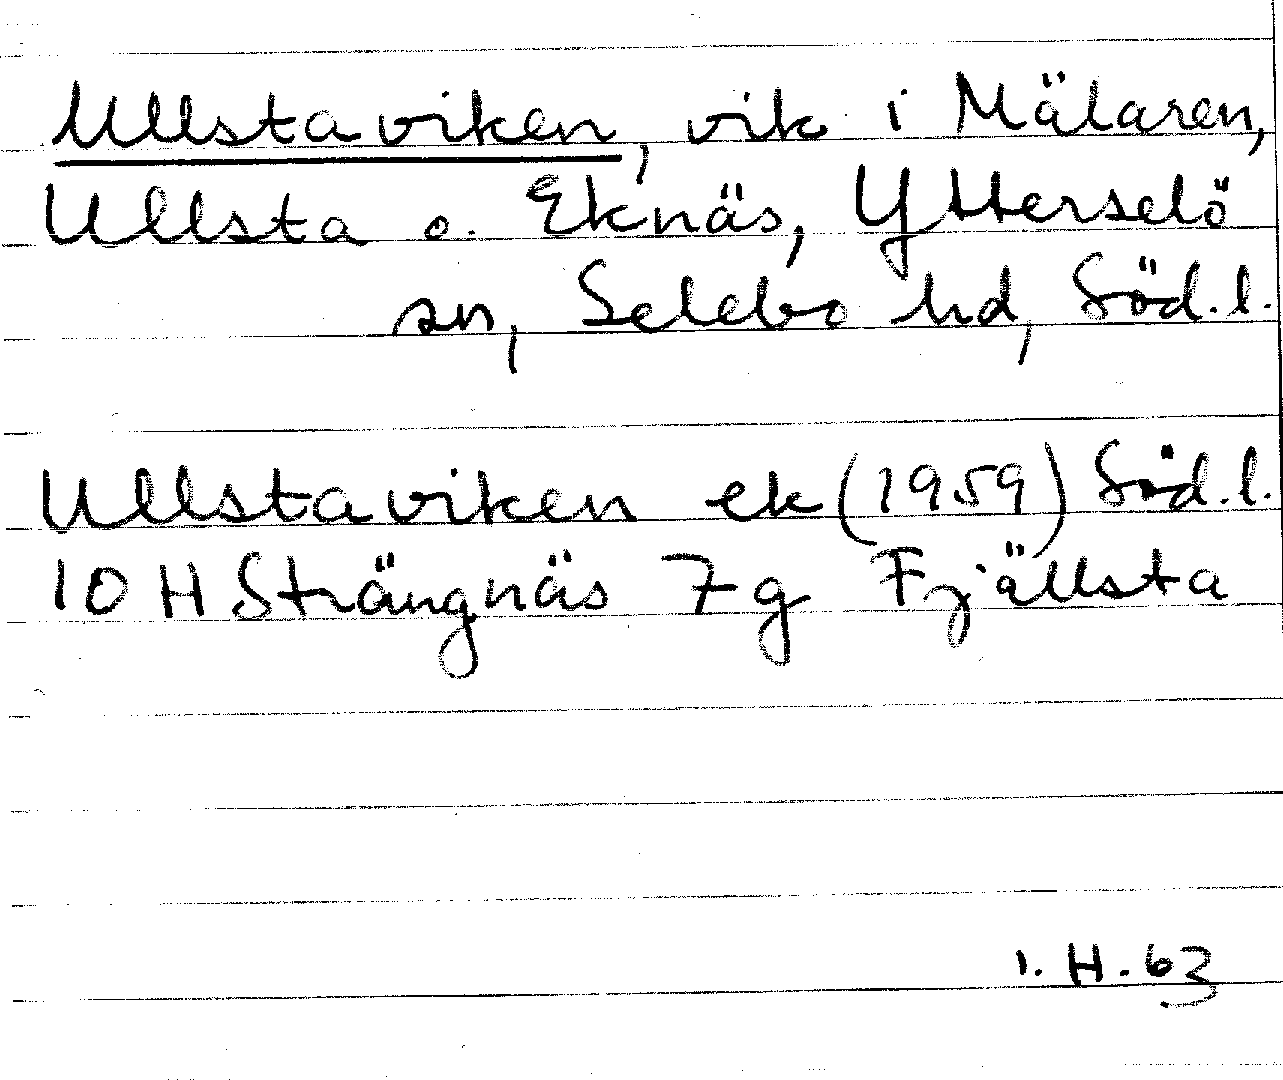 Ullstaviken, vik i Mälaren,
Ullsta o. Eknäs, Ytterselö
sn, Selebo hd, Söd.l.
Ullstaviken ek (1959) Söd.l.
10 H Strängnäs 7 g Fjällsta
1. H. 63